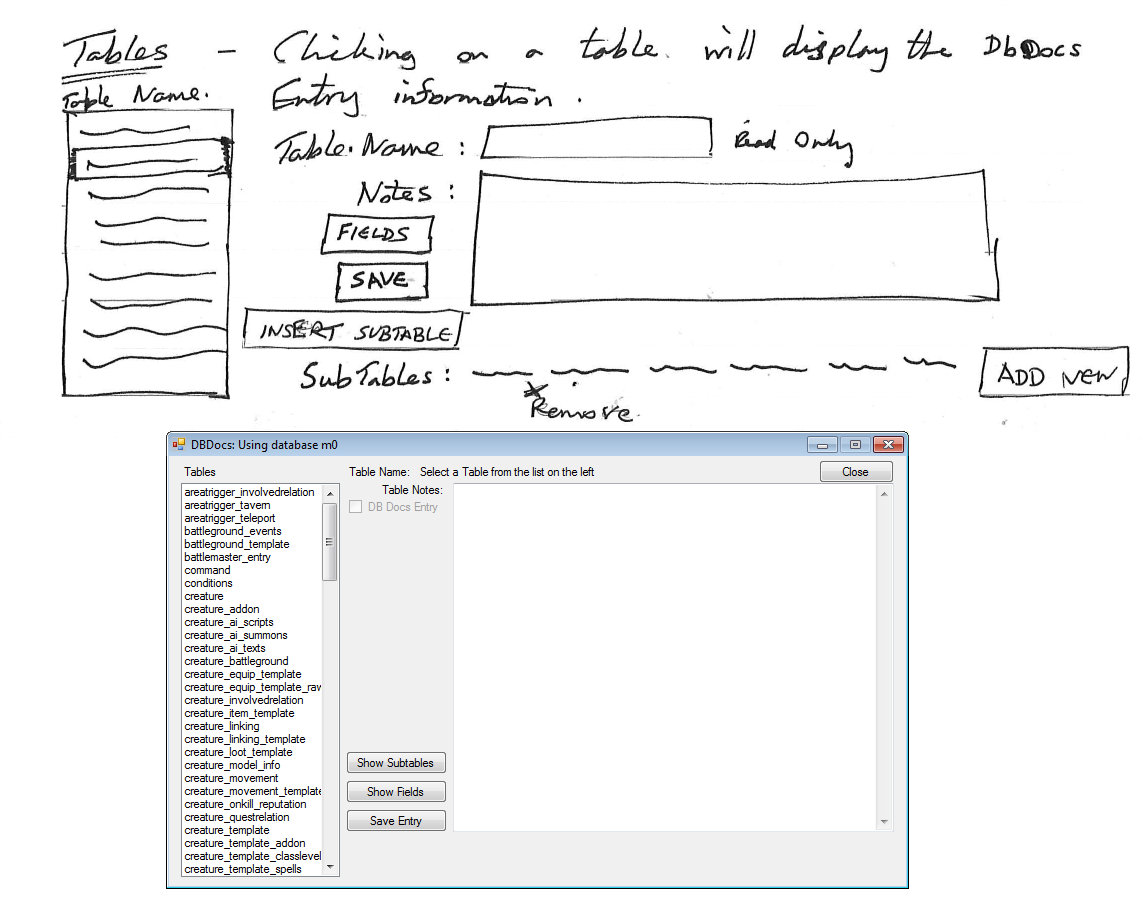 Tables - Clicking on a table will display the DbDocs
Entry information.
Table Name.
Table Name : Read Only
Notes :
FIELDS
SAVE
INSERT SUBTABLE
SubTables : ADD NEW
x Remove
DBDocs: Using database m0
Tables
Table Name: Select a Table from the list on the left
Close
Table Notes:
DB Docs Entry
areatrigger_involvedrelation
areatrigger_tavern
areatrigger_teleport
battleground_events
battleground_template
battlemaster_entry
command
conditions
creature
creature_addon
creature_ai_scripts
creature_ai_summons
creature_ai_texts
creature_battleground
creature_equip_template
creature_equip_template_raw
creature_involvedrelation
creature_item_template
creature_linking
creature_linking_template
creature_loot_template
creature_model_info
creature_movement
creature_movement_template
creature_onkill_reputation
creature_questrelation
creature_template
creature_template_addon
creature_template_classlevel
creature_template_spells
Show Subtables
Show Fields
Save Entry